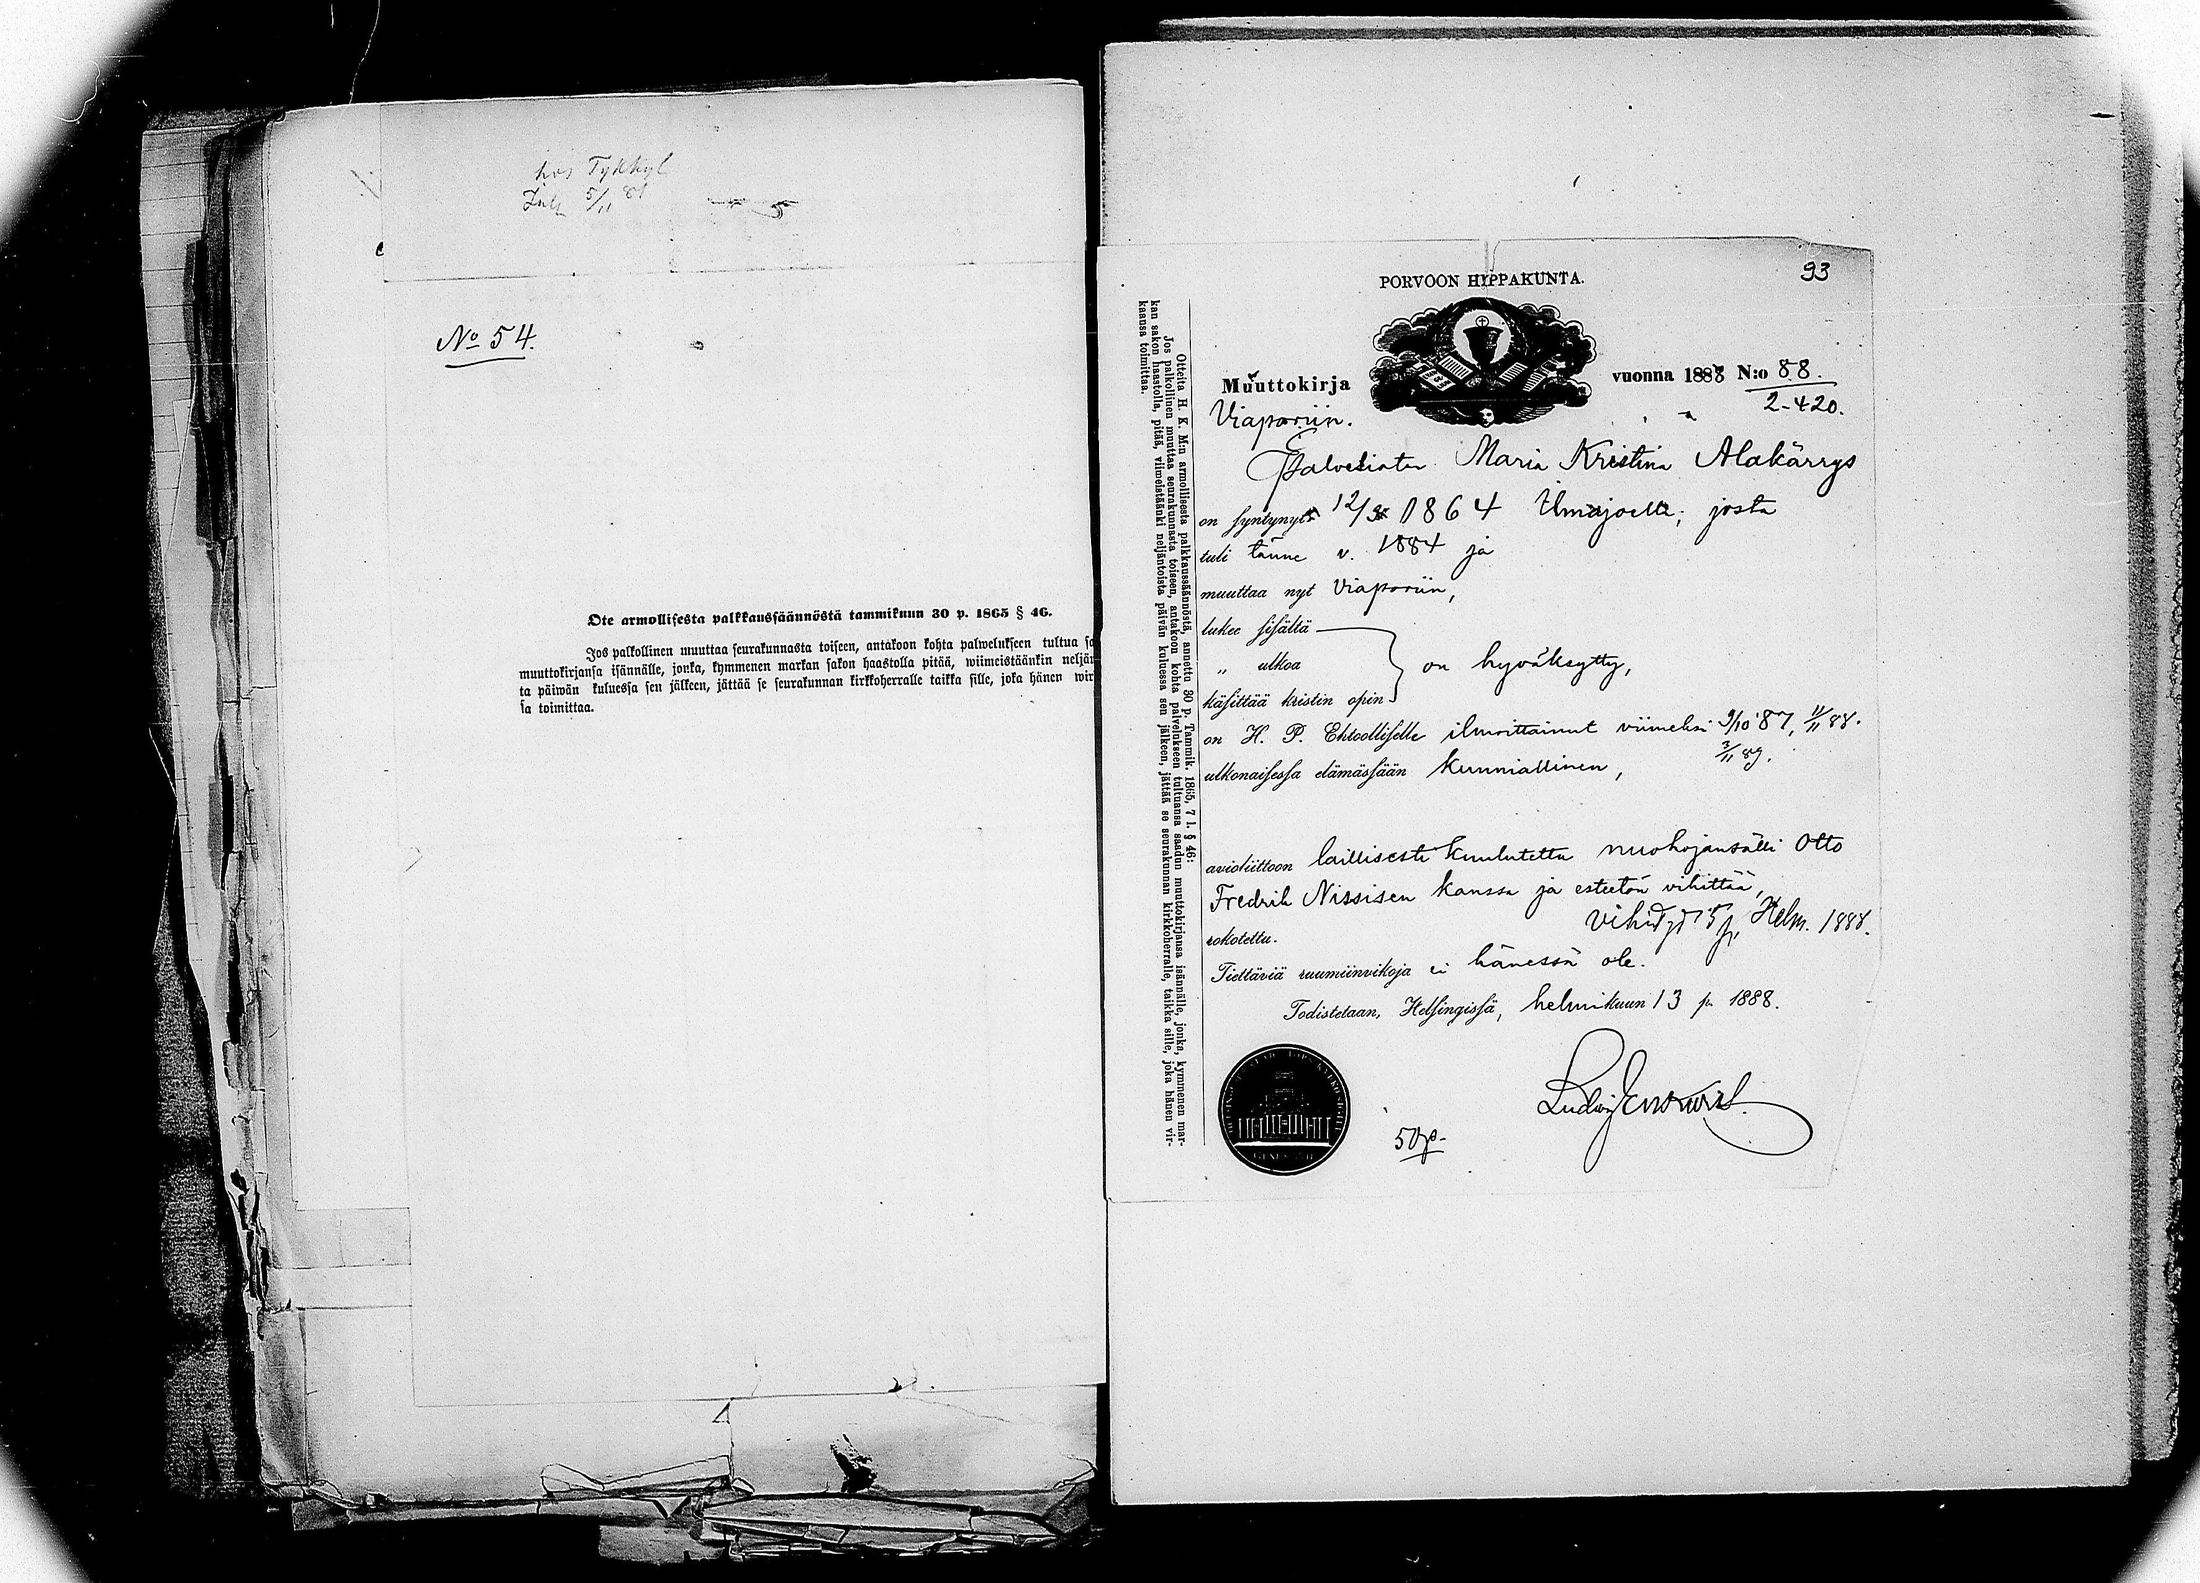 hos Tykkyl
5/11 81
No 54.
Ote armollisesta palkkaussäännöstä tammikuun 30 p. 1865 § 46.
Jos palkollinen muuttaa seurakunnasta toiseen, antakoon kohta palwelukseen tultua sa
muuttokirjansa isännälle, jonka, kymmenen markan sakon haastolla pitää, wiimeistäänkin neljän
ta päiwän kuluessa sen jälkeen, jättää se seurakunnan kirkkoherralle taikka sille, joka hänen wir
sa toimittaa.
PORVOON HIPPAKUNTA.
93
Muuttokirja
vuonna 1888 N:o 88.
Viaporiin.
2-420.
Palveliatar Maria Kristina Alakärrys
on syntynyt 12/3 1864 Ilmajoella; josta
tuli tänne v. 1884 ja
muuttaa nyt Viaporiin,
lukee sisältä
„ ulkoa
on hyväksytty,
käsittää kristin opin
on H. P. Ehtoolliselle ilmoittainut viimeksi 9/10 87, 11/11 88.
3/11 89.
ulkonaisessa elämässään kunniallinen,
avioliittoon laillisesti kuulutettu nuohojansälli Otto
Fredrik Nissisen kanssa ja esteetön vihittää,
Vihid 15 p. Helm. 1888.
rokotettu.
Tiettäviä ruumiinvikoja ei hänessä ole.
Todistetaan, Helsingissä, helmikuun 13 p. 1888.
50 p.
Otteita H. K. M:n armollisesta palkkaussäännöstä, annettu 30 p. Tammik. 1865, 7 l. § 46:
Jos palkollinen muuttaa seurakunnasta toiseen, antakoon kohta palvelukseen tultuansa saadun muuttokirjansa isännälle, jonka, kymmenen mar-
kan sakon haastolla, pitää, viimeistäänki neljäntoista päivän kuluessa sen jälkeen, jättää se seurakunnan kirkkoherralle, taikka sille, joka hänen vir-
kaansa toimittaa.